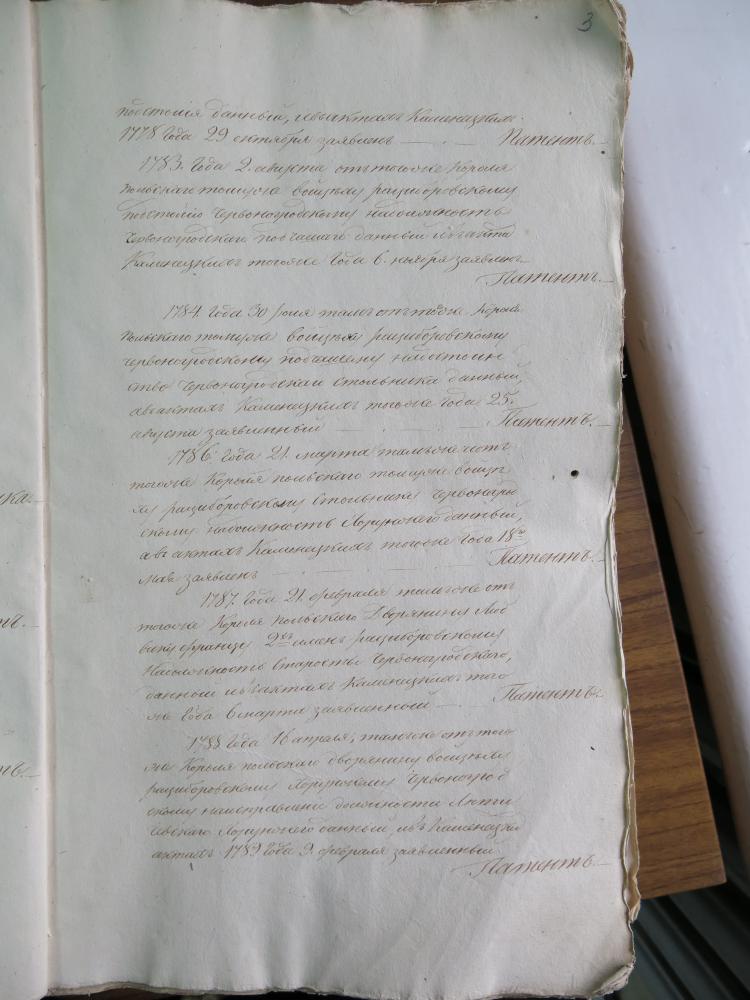 3
подстолія данный, и въ актахъ Каменецкихъ
1778 года 29 октября заявленъ — Патентъ.
1783. года 2. августа отъ тогоже Короля
польскаго томуже Войцѣху Рациборовскому
подстолію Червоногродскому на должность
Червоногродскаго подчашаго данный и въ актахъ
Каменецкихъ тогоже года 6. ноября заявленъ
Патентъ.
1784. года 30 Іюля также отъ тогоже Короля
польскаго томуже Войцѣху Рациборовскому
Червоногродскому подчашему на достоин
ство Червоногродскаго Стольника данный,
а въ актахъ Каменецкихъ тогоже года 25.
августа заявленный — Патентъ.
1786. года 21. марта также отъ
тогоже Короля польскаго томуже Войцѣ
ху Рациборовскому Стольнику Червоногрод
скому на должность Хорунжего данный,
а въ актахъ Каменецкихъ тогоже года 18го
мая заявленъ — Патентъ.
1787. года 21. февраля также отъ
тогоже Короля польскаго Дворянину
Францу 2хъ именъ Рациборовскому
на должность Старосты Червоногродскаго,
данный и въ актахъ Каменецкихъ того
же года 6 марта заявленной — Патентъ.
1788 года 16 апреля, также отъ того
же Короля польскаго дворянину Войцѣху
Рациборовскому Хорунжему Червоногрод
скому на исправленіе должности Лети
чевскаго Хорунжего данный, и въ Каменецкихъ
актахъ 1789 года 9. февраля заявленный
Патентъ.
ка.
тъ.
тъ.